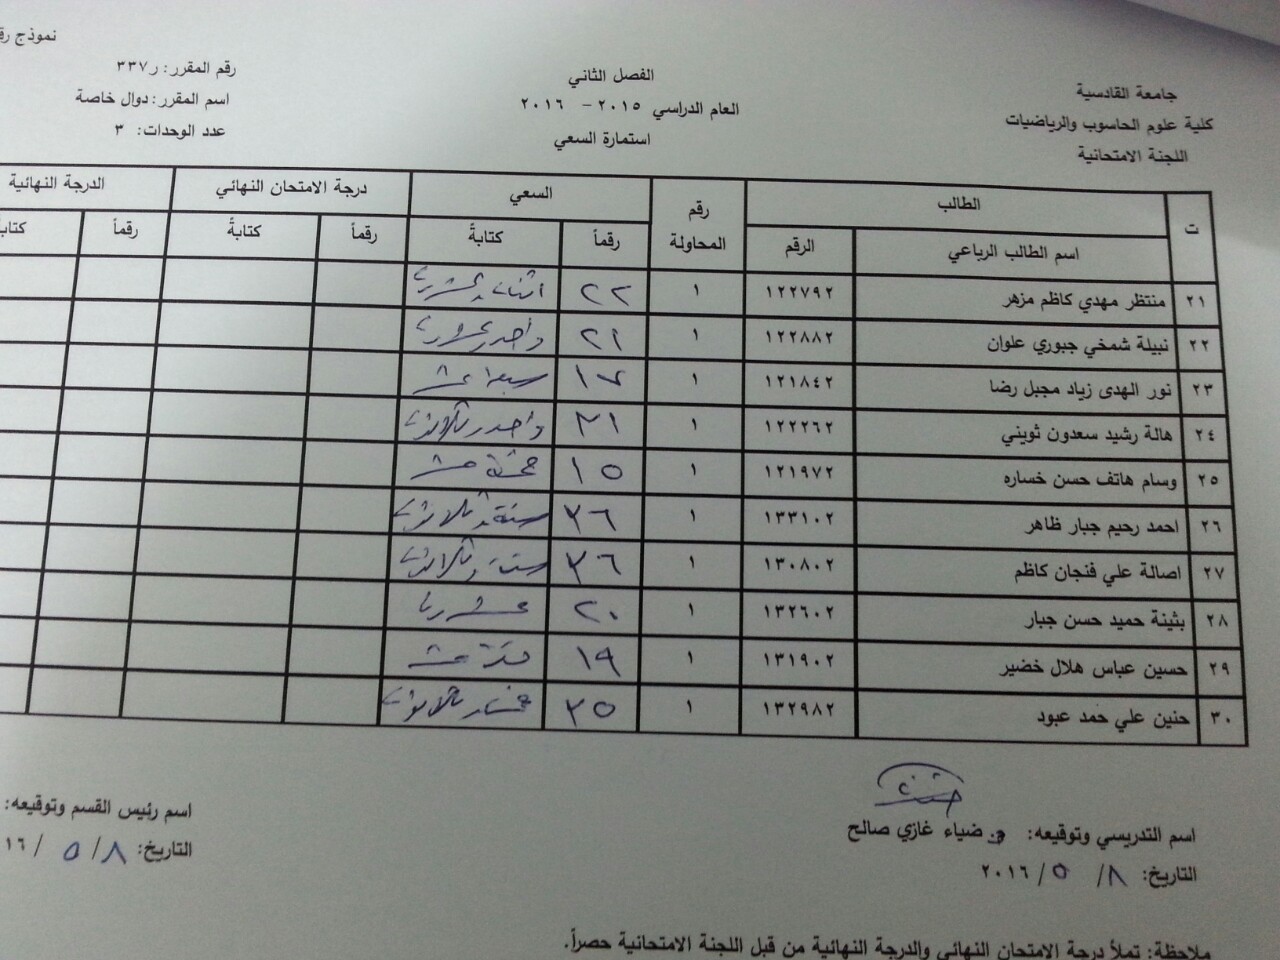 نموذج
جامعة القادسية
كلية علوم الحاسوب والرياضيات
اللجنة الامتحانية
الفصل الثاني
العام الدراسي ٢٠١٥ - ٢٠١٦
استمارة السعي
رقم المقرر: ر٣٣٧
اسم المقرر: دوال خاصة
عدد الوحدات: ٣
ت الطالب رقم المحاولة السعي درجة الامتحان النهائي الدرجة النهائية
اسم الطالب الرباعي الرقم رقماً كتابةً رقماً كتابةً رقماً
٢١ منتظر مهدي كاظم مزهر ١٢٢٧٩٢ ١ ٢٢ اثنان وعشرون
٢٢ نبيلة شمخي جبوري علوان ١٢٢٨٨٢ ١ ٢١ واحد وعشرون
٢٣ نور الهدى زياد مجبل رضا ١٢١٨٤٢ ١ ١٧ سبعة عشر
٢٤ هالة رشيد سعدون ثويني ١٢٢٢٦٢ ١ ٣١ واحد وثلاثون
٢٥ وسام هاتف حسن خساره ١٢١٩٧٢ ١ ١٥ خمسة عشر
٢٦ احمد رحيم جبار ظاهر ١٣٣١٠٢ ١ ٣٦ ستة وثلاثون
٢٧ اصالة علي فنجان كاظم ١٣٠٨٠٢ ١ ٣٦ ستة وثلاثون
٢٨ بثينة حميد حسن جبار ١٣٢٦٠٢ ١ ٢٠ عشرون
٢٩ حسين عباس هلال خضير ١٣١٩٠٢ ١ ١٩ تسعة عشر
٣٠ حنين علي حمد عبود ١٣٢٩٨٢ ١ ٣٥ خمسة وثلاثون
اسم التدريسي وتوقيعه: د. ضياء غازي صالح
التاريخ: ٨ / ٥ / ٢٠١٦
اسم رئيس القسم وتوقيعه:
التاريخ: ٨ / ٥ / ١٦
ملاحظة: تملأ درجة الامتحان النهائي والدرجة النهائية من قبل اللجنة الامتحانية حصراً.